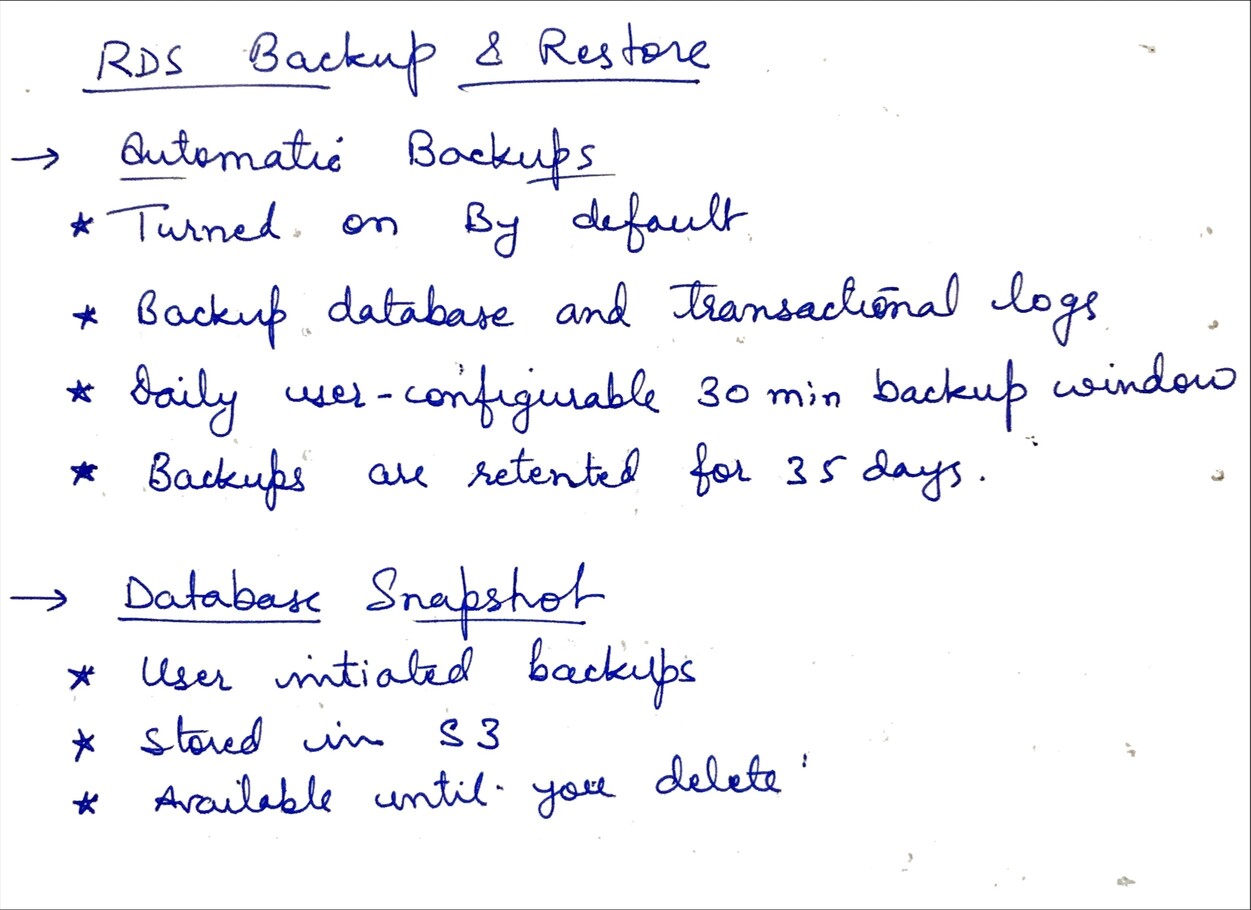 RDS Backup & Restore
→ Automatic Backups
* Turned on By default
* Backup database and transactional logs
* Daily user-configurable 30 min backup window
* Backups are retented for 35 days.
→ Database Snapshot
* User intiated backups
* Stored in S3
* Available until you delete